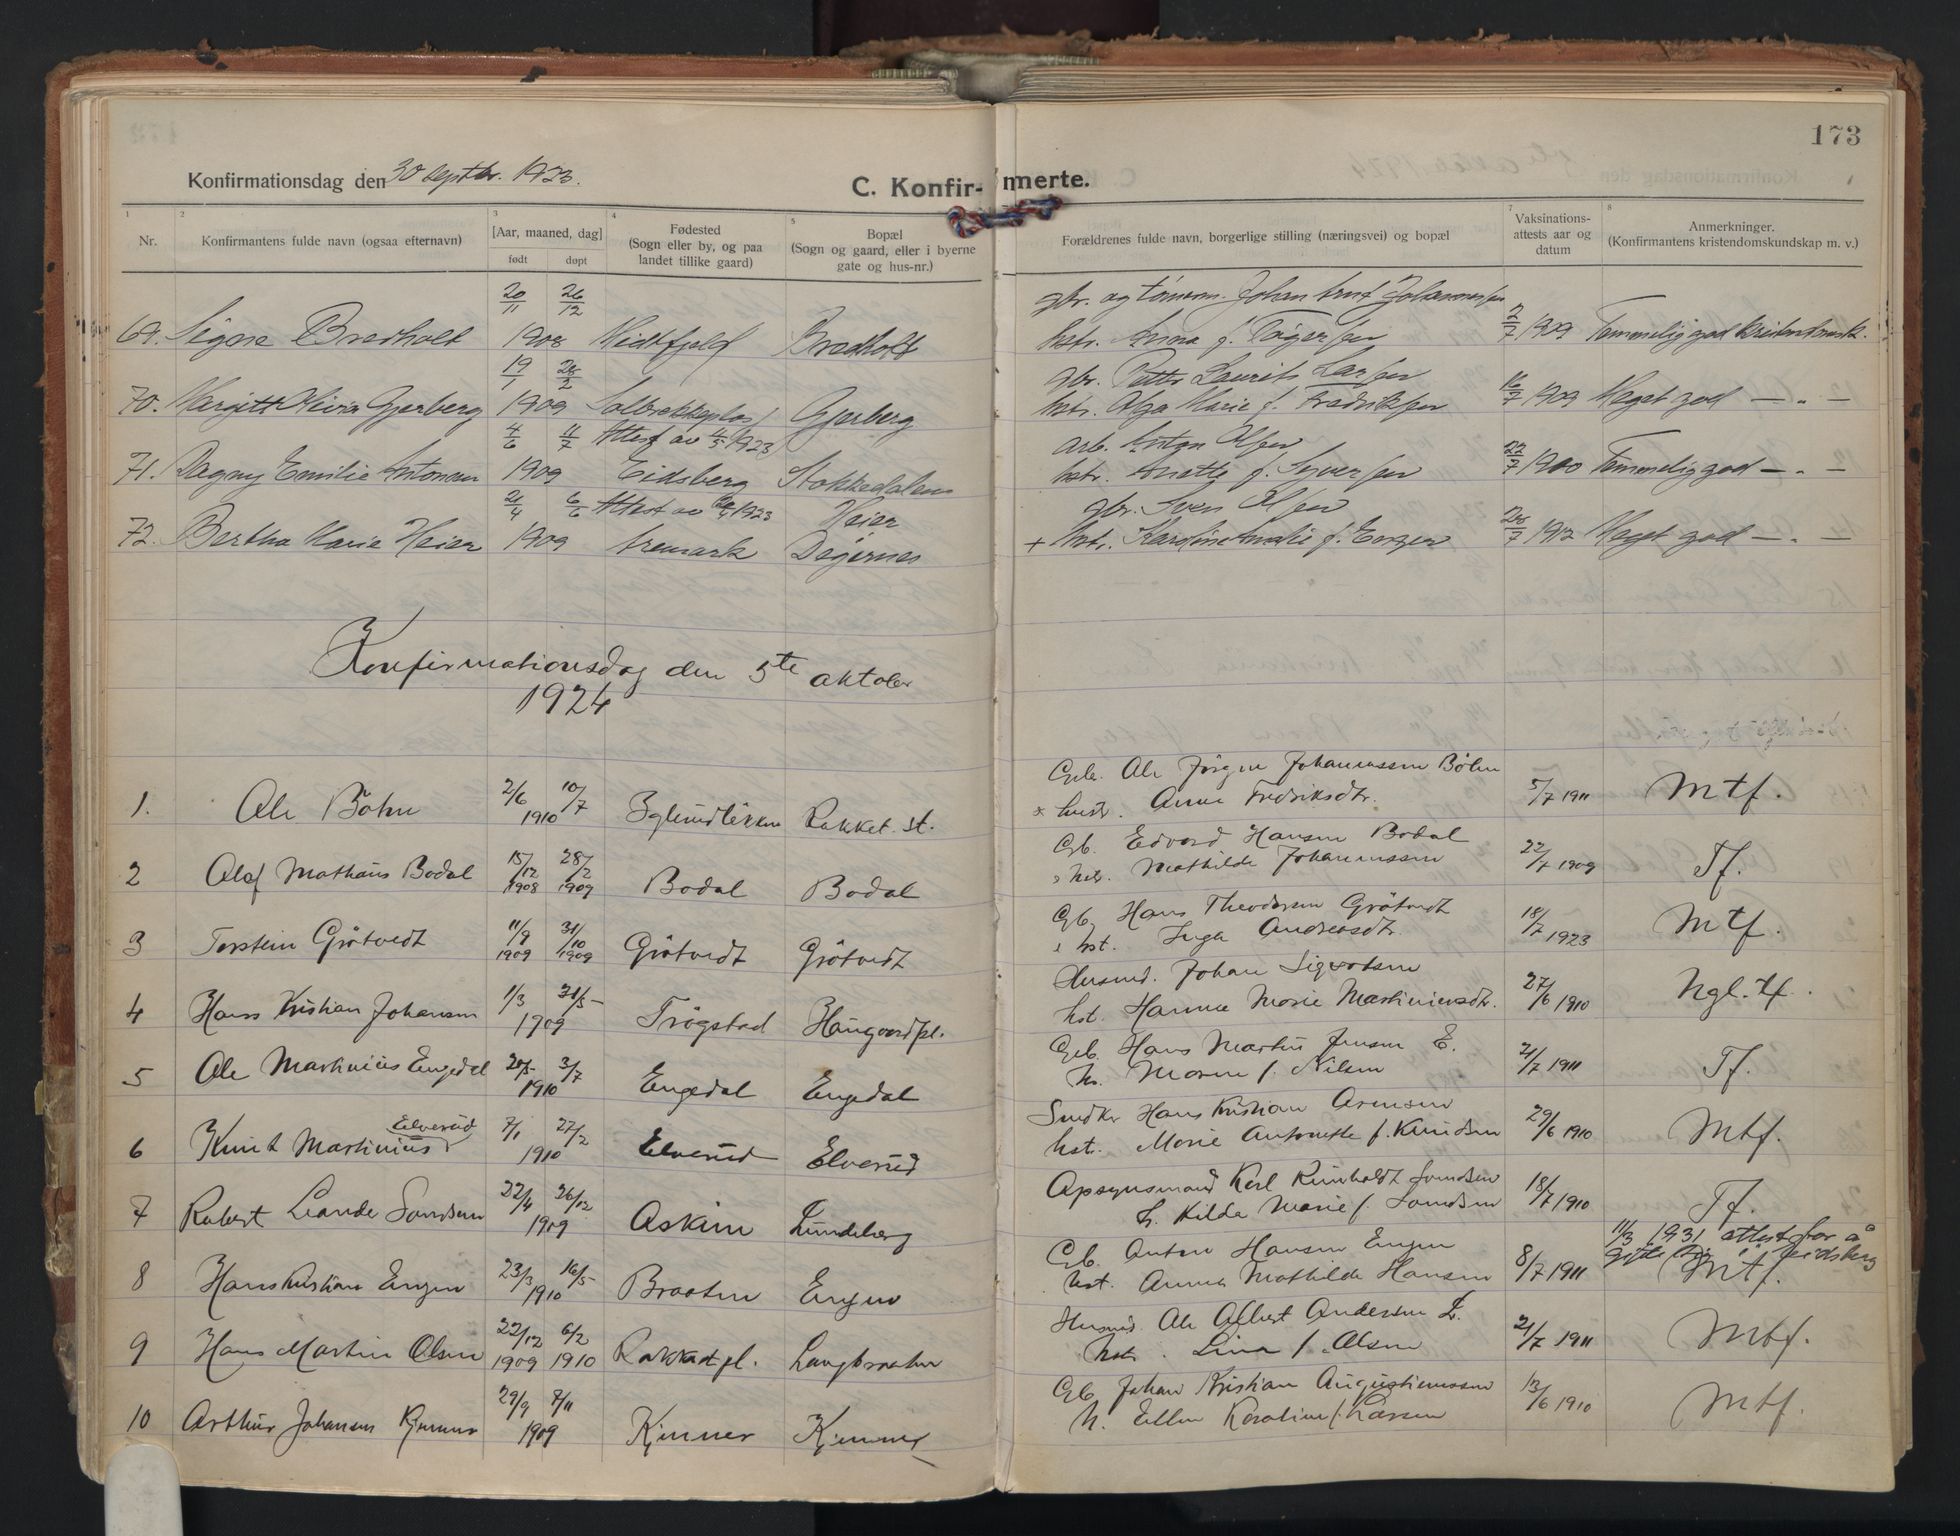 173
Konfirmationsdag den 30 septbr. 1923.
C. Konfir- merte.
1 2 3 4 5 7 8
Nr. Konfirmantens fulde navn (ogsaa efternavn) [Aar, maaned, dag] født døpt Fødested (Sogn eller by, og paa landet tillike gaard) Bopæl (Sogn og gaard, eller i byerne gate og hus-nr.) Forældrenes fulde navn, borgerlige stilling (næringsvei) og bopæl Vaksinations-attests aar og datum Anmerkninger. (Konfirmantens kristendomskundskap m. v.)
20/11 26/12 gbr. og tømm. Johan Johannessen
69. Signe Bredholt 1908 Bredholt hstr. Anna f. 2/7 1909 Temmelig god kristendomsk.
19/1 28/2 gbr. Petter Laurits Larsen
70. Margitt Gjerberg 1909 Gjerberg hstr. Olga Marie f. Fredriksen 16/7 1909 Meget god — „ —
4/6 11/7 Attest av 4/5 1923 arb. Anton Olsen
71. Dagny Emilie Antonsen 1909 Eidsberg Stokkedalen hstr. Anette f. Syversen 22/7 1900 Temmelig god — „ —
2/4 6/6 Attest av 1923 Heier gbr. Sven Olsen
72. Bertha Marie Heier 1909 Aremark Degernes + hstr. Karoline Amalie f. 28/7 1912 Meget god — „ —
Konfirmationsdag den 5te oktober
1924
Gbr. Ole Jörgen Johannessen Böhn
1. Ole Böhn 2/6 10/7 1910 Rakkest. × hustr. Anne Fredriksdtr. 5/7 1911 Mtf.
Gb. Edvard Hansen Bodal
2 Olaf Mathæus Bodal 15/12 1908 28/2 1909 Bodal Bodal hstr. Mathilde Johannessen 22/7 1909 Tf.
Gb. Hans Theodorsen Grötvedt
3 Torstein Grötvedt 11/9 1909 31/10 1909 Grötvedt Grötvedt hst. Inga Andreasdtr. 18/7 1923 Mtf.
Husmd. Johan Sigvatsen
4 Hans Kristian Johansen 1/3 31/5 1909 Trögstad Haugaardpl. hst. Hanna Marie Martiniusdtr. 27/6 1910 Ngl. tf.
Gb. Hans Martin Jensen E.
5 Ole Martinius Engedal 20/5 3/7 1910 Engedal Engedal h. Maren f. Nilsen 21/7 1911 Tf.
Smedkr Hans Kristian Arensen
6 Knut Martinius Elverud 7/1 27/2 1910 Elverud Elverud hst. Marie Antonette f. Knudsen 29/6 1910 Mtf.
Opsynsmand Karl Reinholdt Svendsen
7 Robert Leander Svendsen 22/4 26/12 1909 Askim Lundeberg h. Hilda Marie f. Svendsen 18/7 1910 Tf.
11/3 1931 attest for å gifte sig i Eidsberg
Gb. Anton Hansen Engen
8 Hans Kristian Engen 23/3 16/5 1910 Braaten Engen hst. Anna Mathilde Hansen 8/7 1911 Mtf.
Husmd. Ole Albert Andersen L.
9 Hans Martin Olsen 22/12 1909 6/2 1910 Rakkestpl. Langbraaten hst. Lina f. Olsen 21/7 1911 Mtf.
Gb. Johan Kristian Augustinussen
10 Arthur Johansen Kjenner 29/9 7/11 1909 Kjenner Kjenner h. Ellen Karoline f. Larsen 13/6 1910 Mtf.